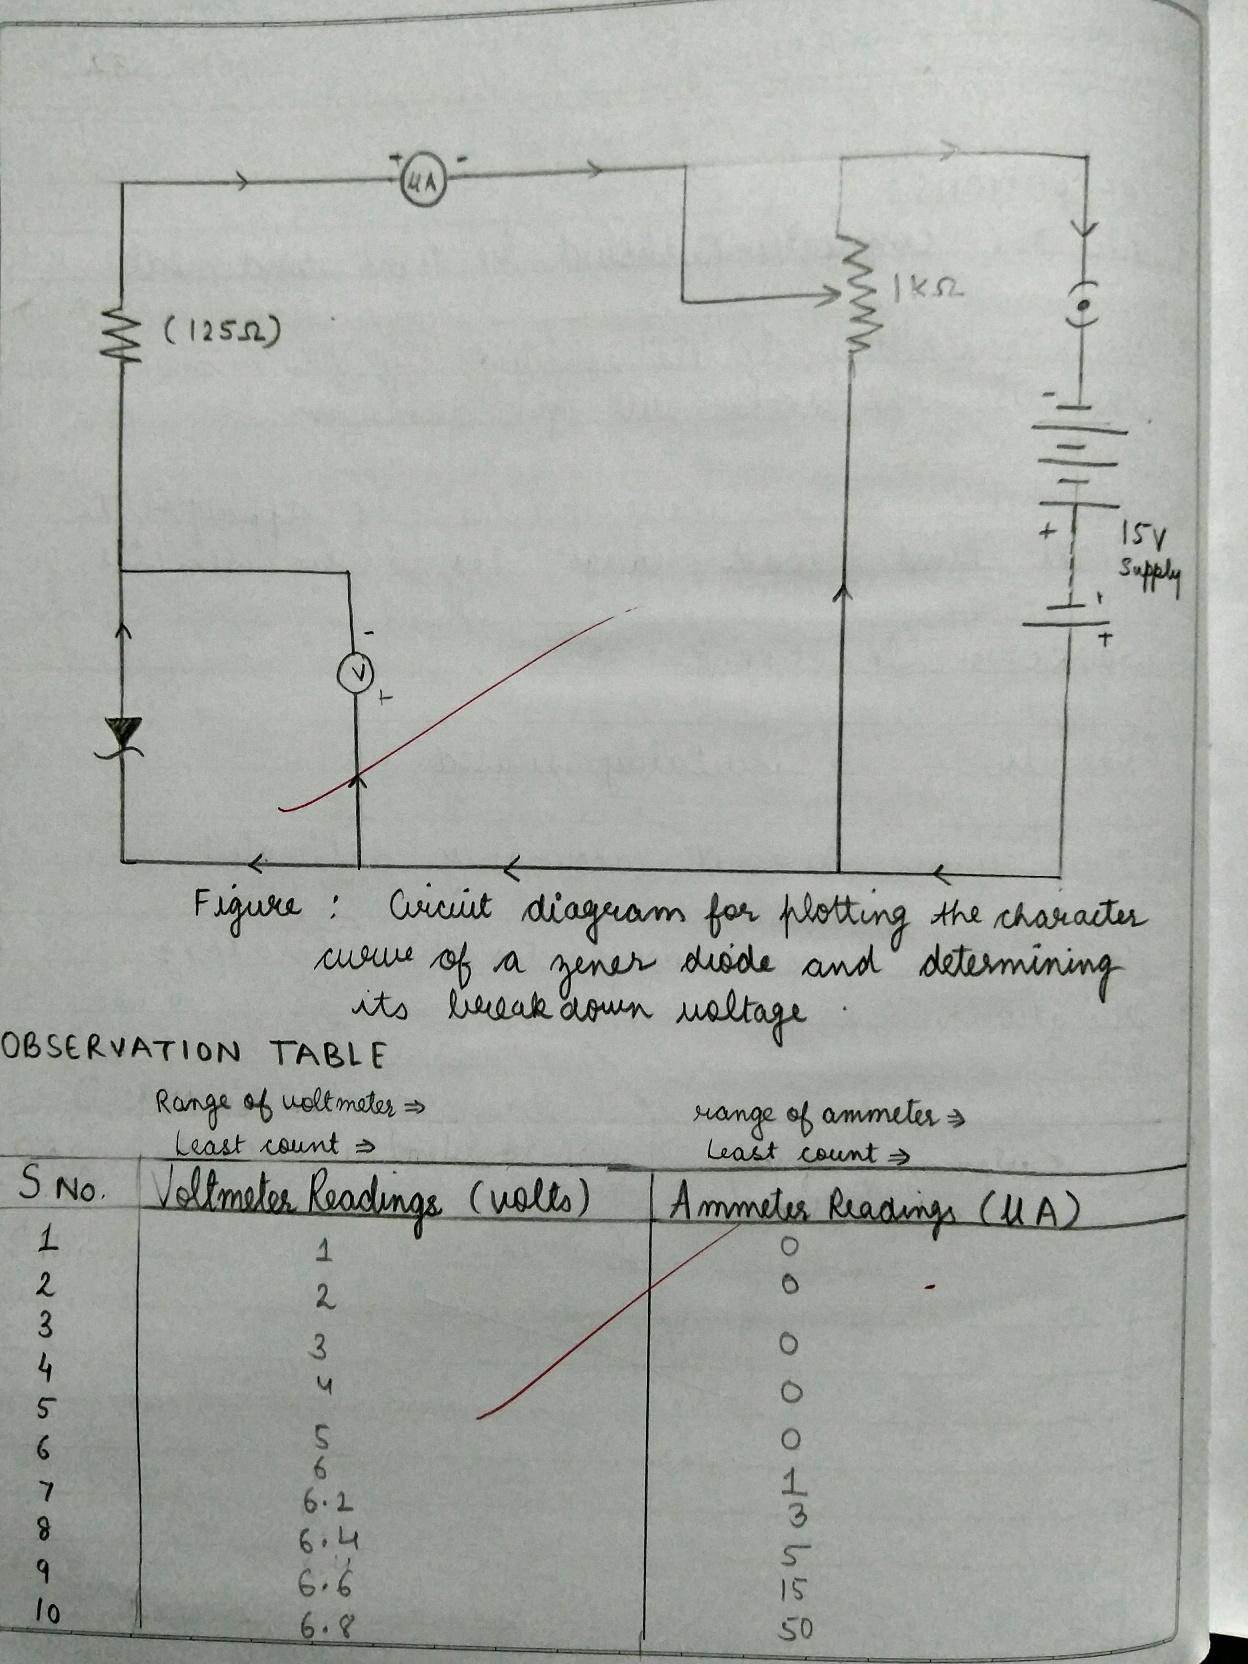 + μA -
(125Ω)
1KΩ
-
+ 15V
Supply
+
-
V
+
Figure : Circuit diagram for plotting the character
curve of a zener diode and determining
its breakdown voltage .
OBSERVATION TABLE
Range of voltmeter ⇒ range of ammeter ⇒
Least count ⇒ Least count ⇒
S No. Voltmeter Readings (volts) Ammeter Readings (μA)
1 1 0
2 2 0
3 3 0
4 4 0
5 5 0
6 6 1
7 6.2 3
8 6.4 5
9 6.6 15
10 6.8 50